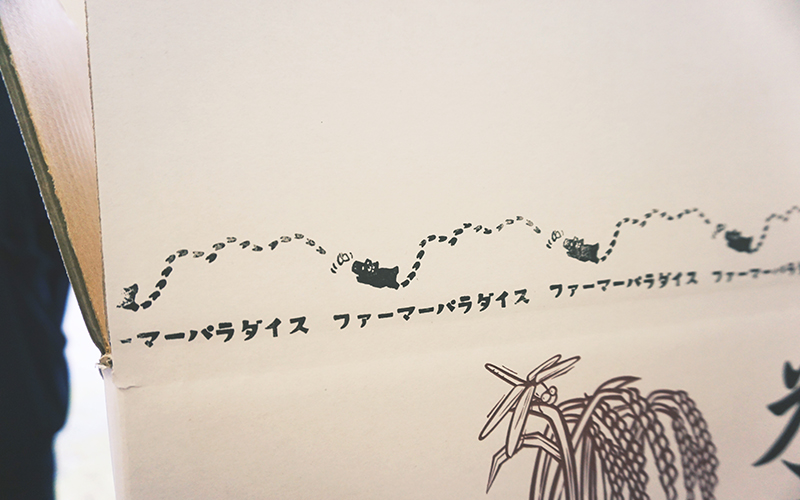 ーマーパラダイス ファーマーパラダイス ファーマーパラダイス ファーマーパラ